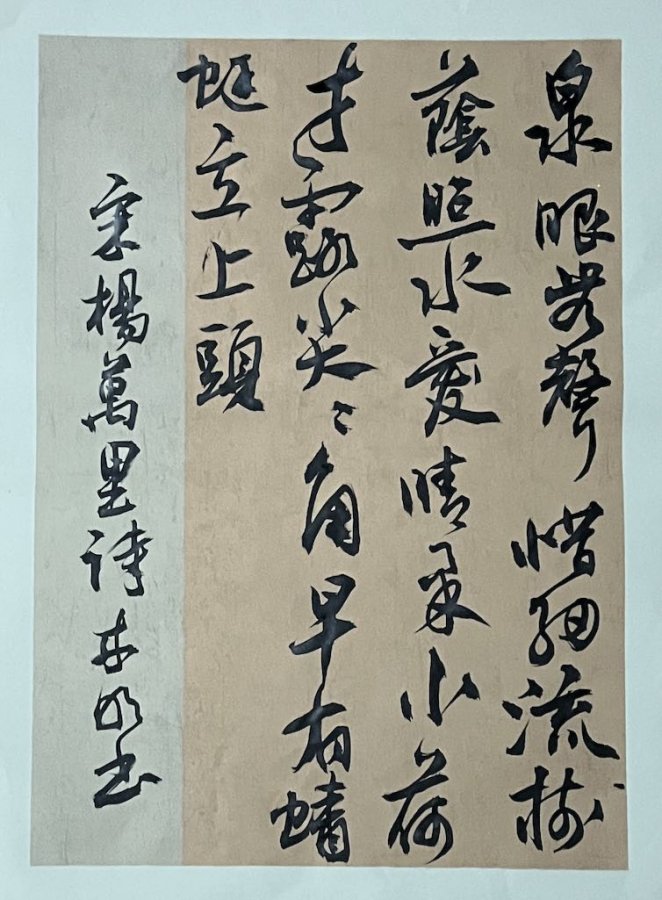 泉眼無聲惜細流樹
蔭照水愛晴柔小荷
才露尖〻角早有蜻
蜓立上頭
宋楊萬里詩 明书